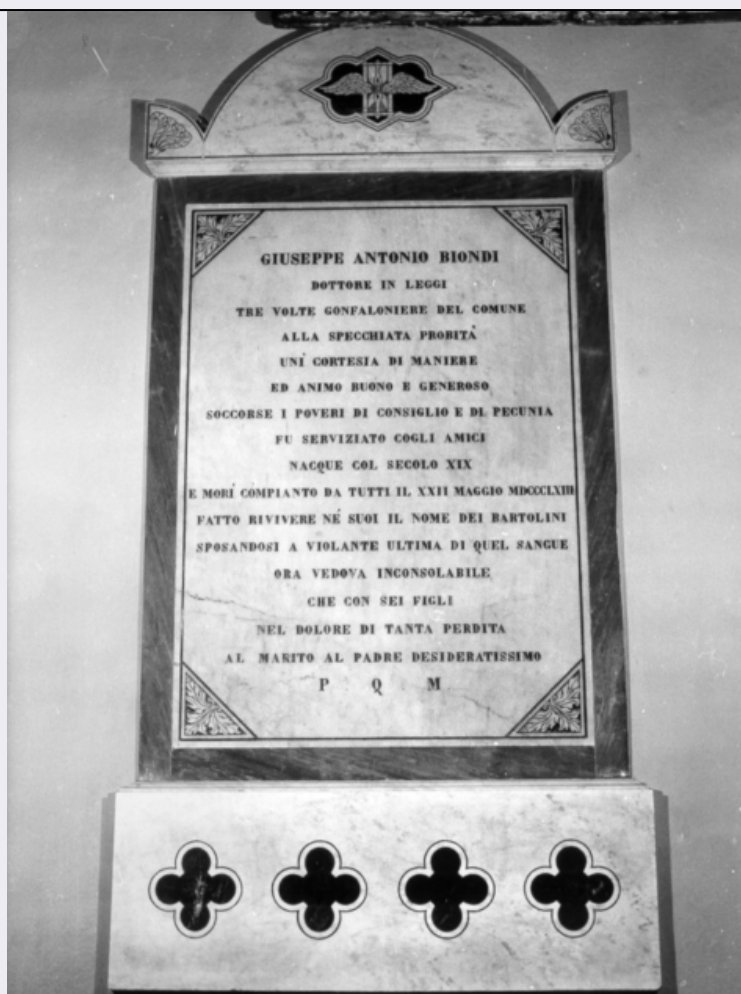 GIUSEPPE ANTONIO BIONDI
DOTTORE IN LEGGI
TRE VOLTE GONFALONIERE DEL COMUNE
ALLA SPECCHIATA PROBITÁ
UNÍ CORTESIA DI MANIERE
ED ANIMO BUONO E GENEROSO
SOCCORSE I POVERI DI CONSIGLIO E DI PECUNIA
FU SERVIZIATO COGLI AMICI
NACQUE COL SECOLO XIX
E MORÍ COMPIANTO DA TUTTI IL XXII MAGGIO MDCCCLXIII
FATTO RIVIVERE NÉ SUOI IL NOME DEI BARTOLINI
SPOSANDOSI A VIOLANTE ULTIMA DI QUEL SANGUE
ORA VEDOVA INCONSOLABILE
CHE CON SEI FIGLI
NEL DOLORE DI TANTA PERDITA
AL MARITO AL PADRE DESIDERATISSIMO
P Q M